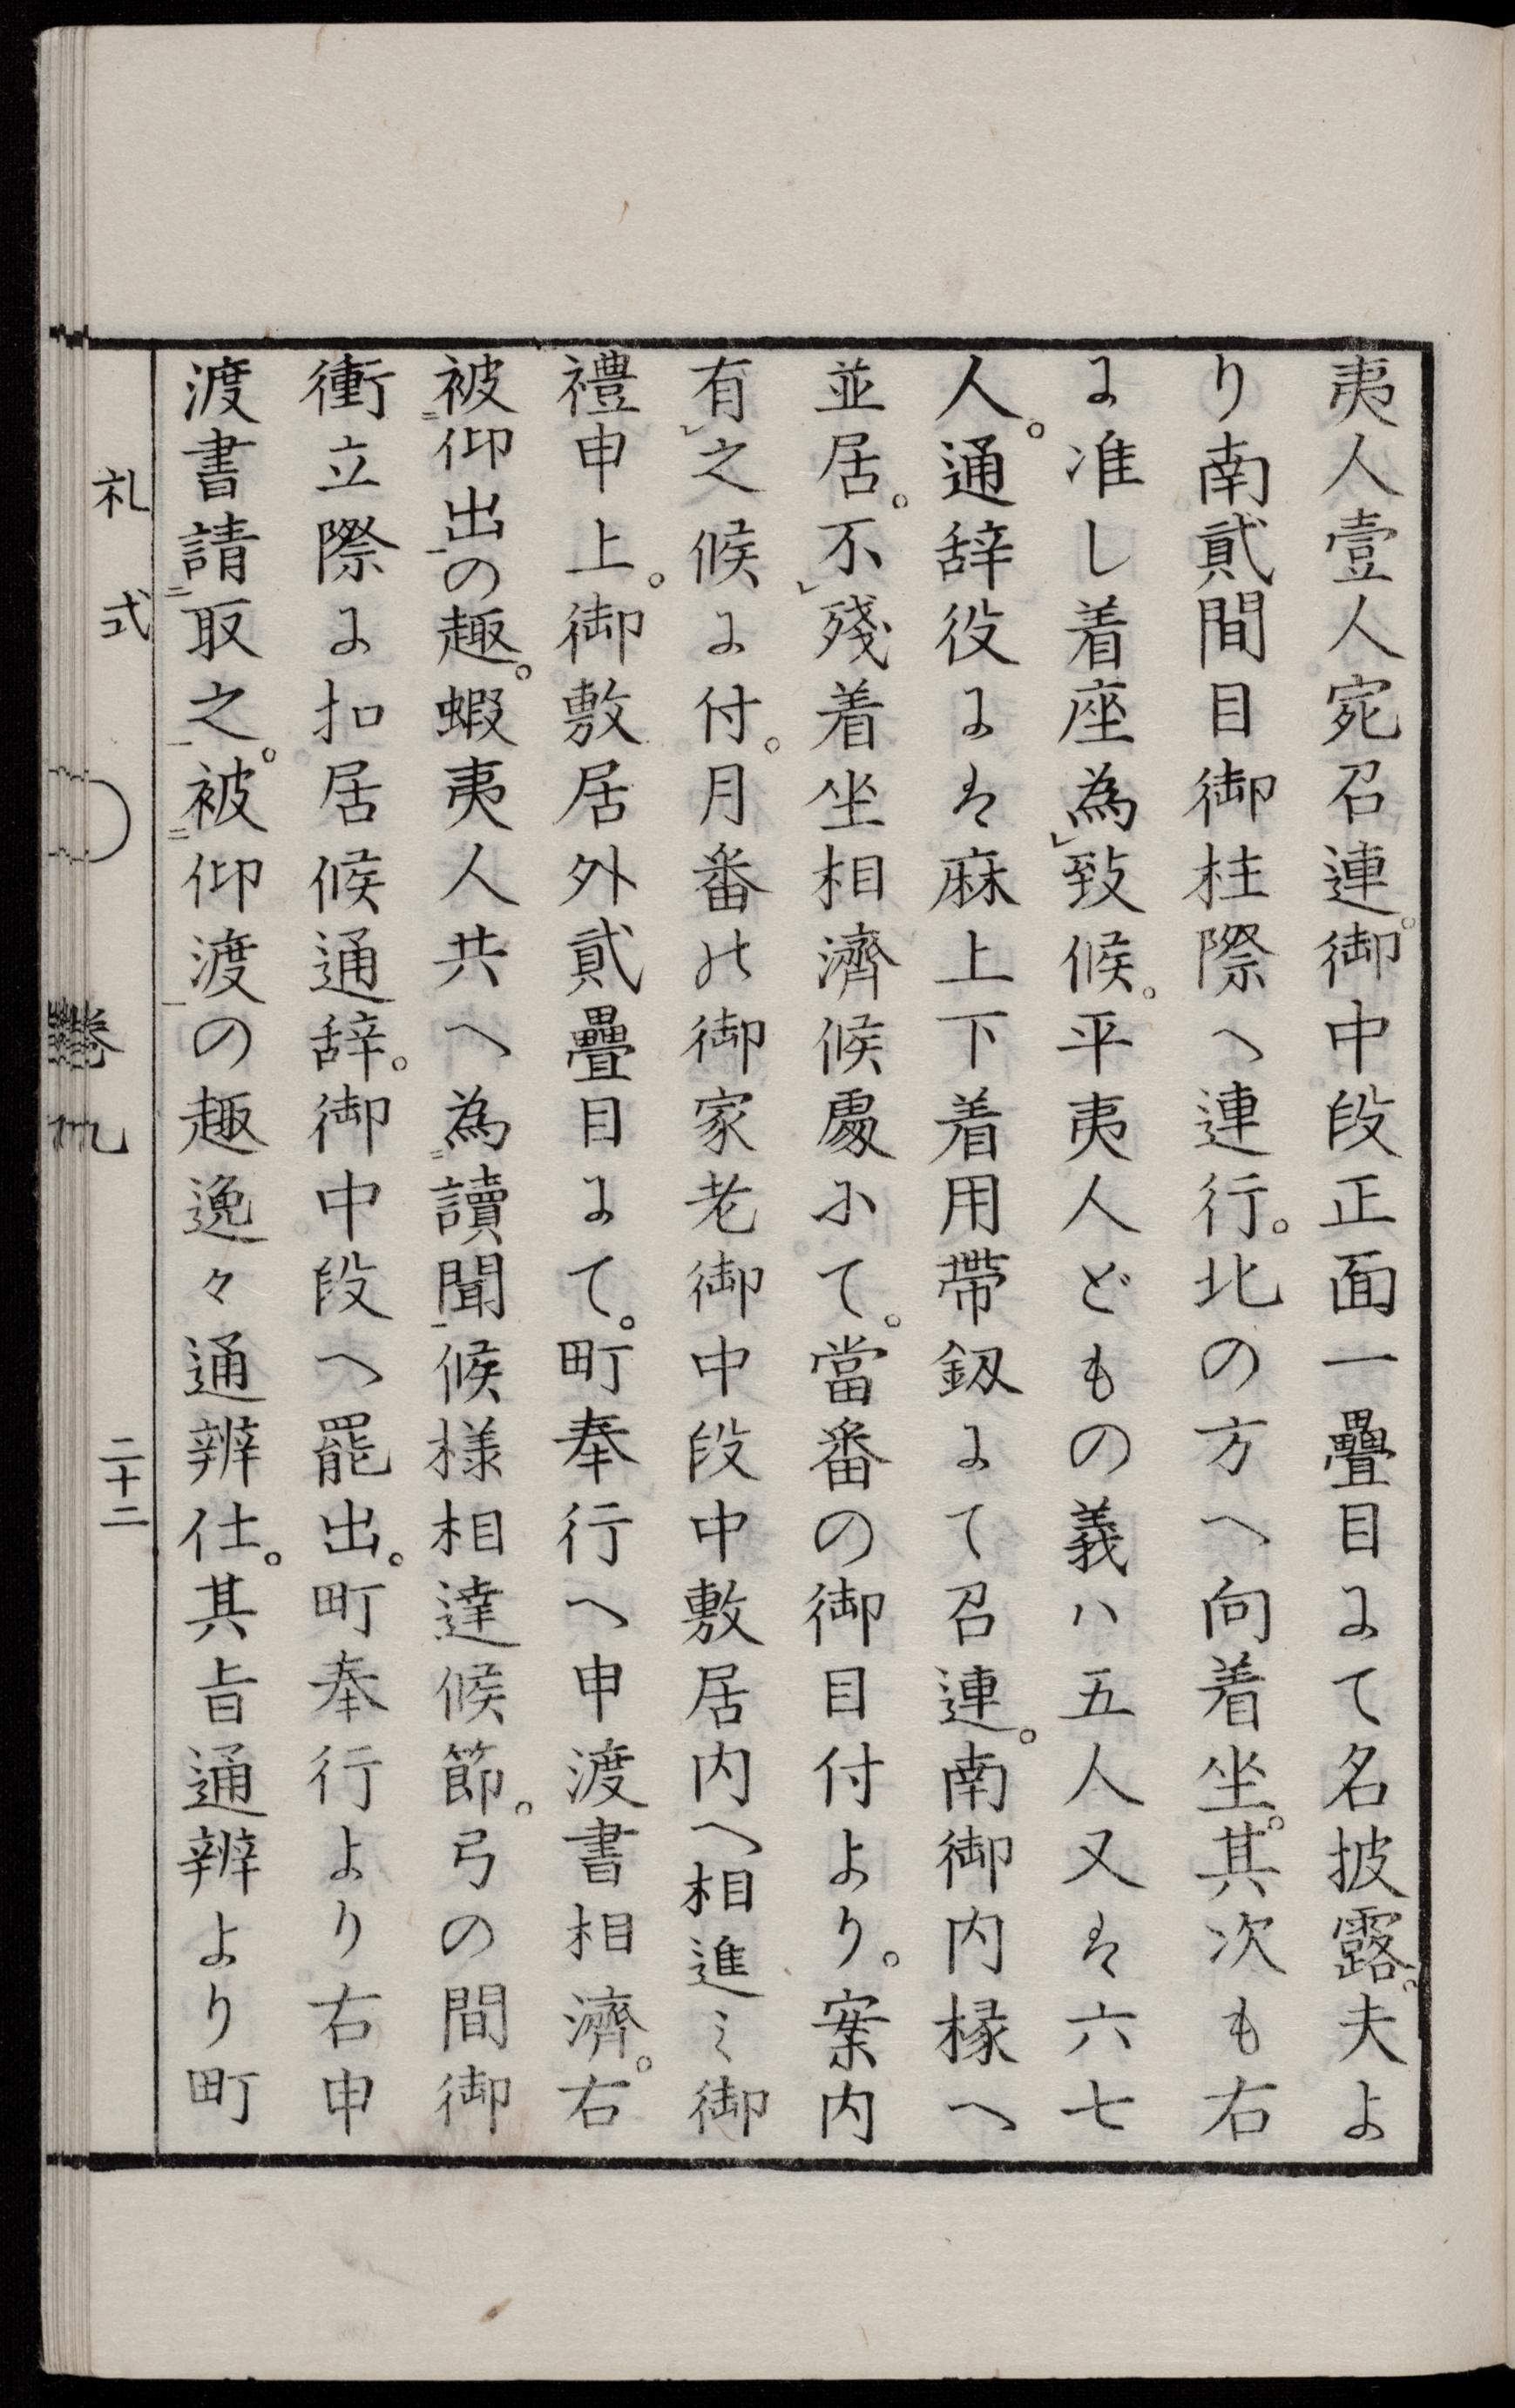 夷人壹人宛召連。御中段正面一疊目にて名披露。夫よ
り南貳間目御柱際へ連行。北の方へ向着坐。其次も右
に准し着座為㆑致候。平夷人どもの義ハ五人又は六七
人。通辞役には麻上下着用帶釼にて召連。南御内椽へ
並居。不㆑殘着坐相濟候處にて。當番の御目付より。案内
有㆑之候に付。月番の御家老御中段中敷居内へ相進ミ御
禮申上。御敷居外貳疊目にて。町奉行へ申渡書相濟。右
被㆓仰出㆒の趣。蝦夷人共へ為㆓讀聞㆒候様相達候節。弓の間御
衝立際に扣居候通辞。御中段へ罷出。町奉行より右申
渡書請㆓取之㆒。被㆓仰渡㆒の趣逸々通辨仕。其旨通辨より町
礼式 卷九 二十二